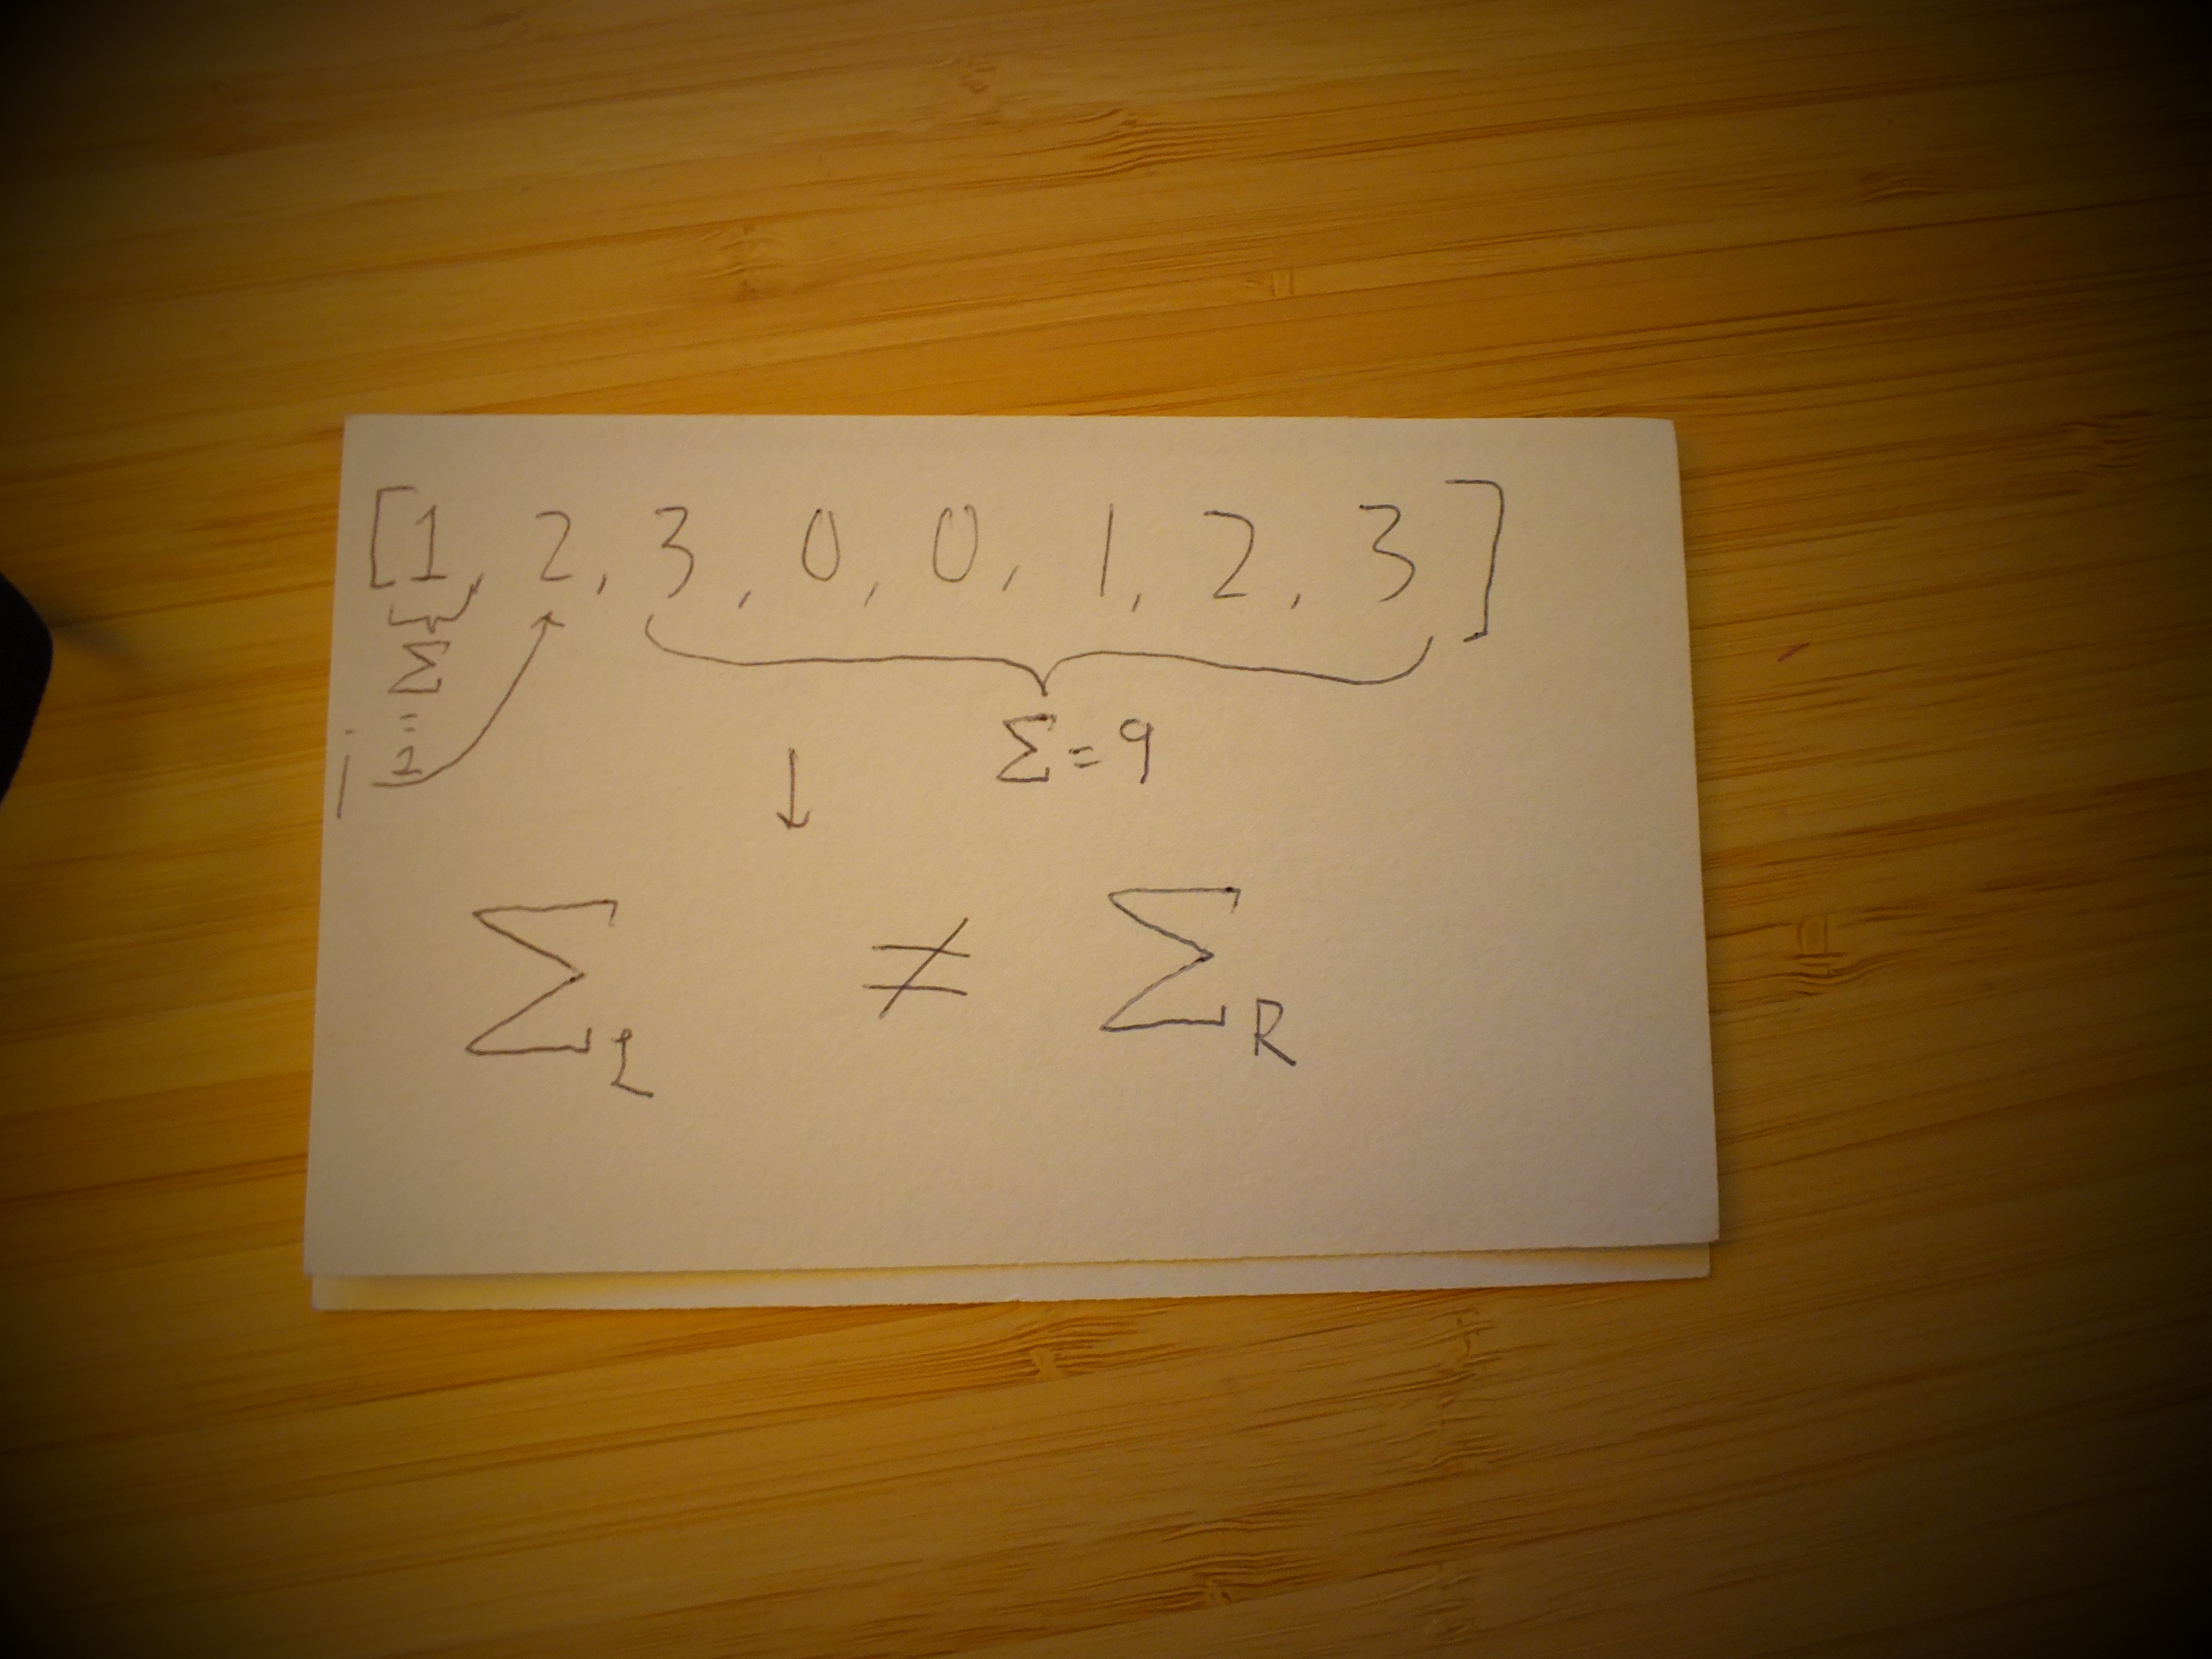 [1, 2, 3, 0, 0, 1, 2, 3]
Σ=1
i
Σ=9
↓
Σ_L ≠ Σ_R